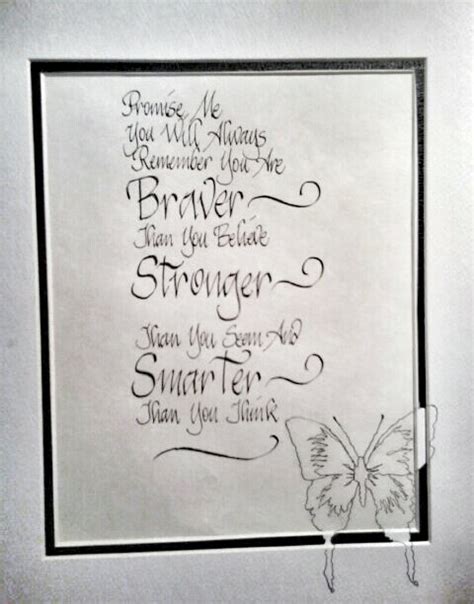 Promise Me
You Will Always
Remember You Are
Braver
Than You Believe
Stronger
Than You Seem And
Smarter
Than You Think